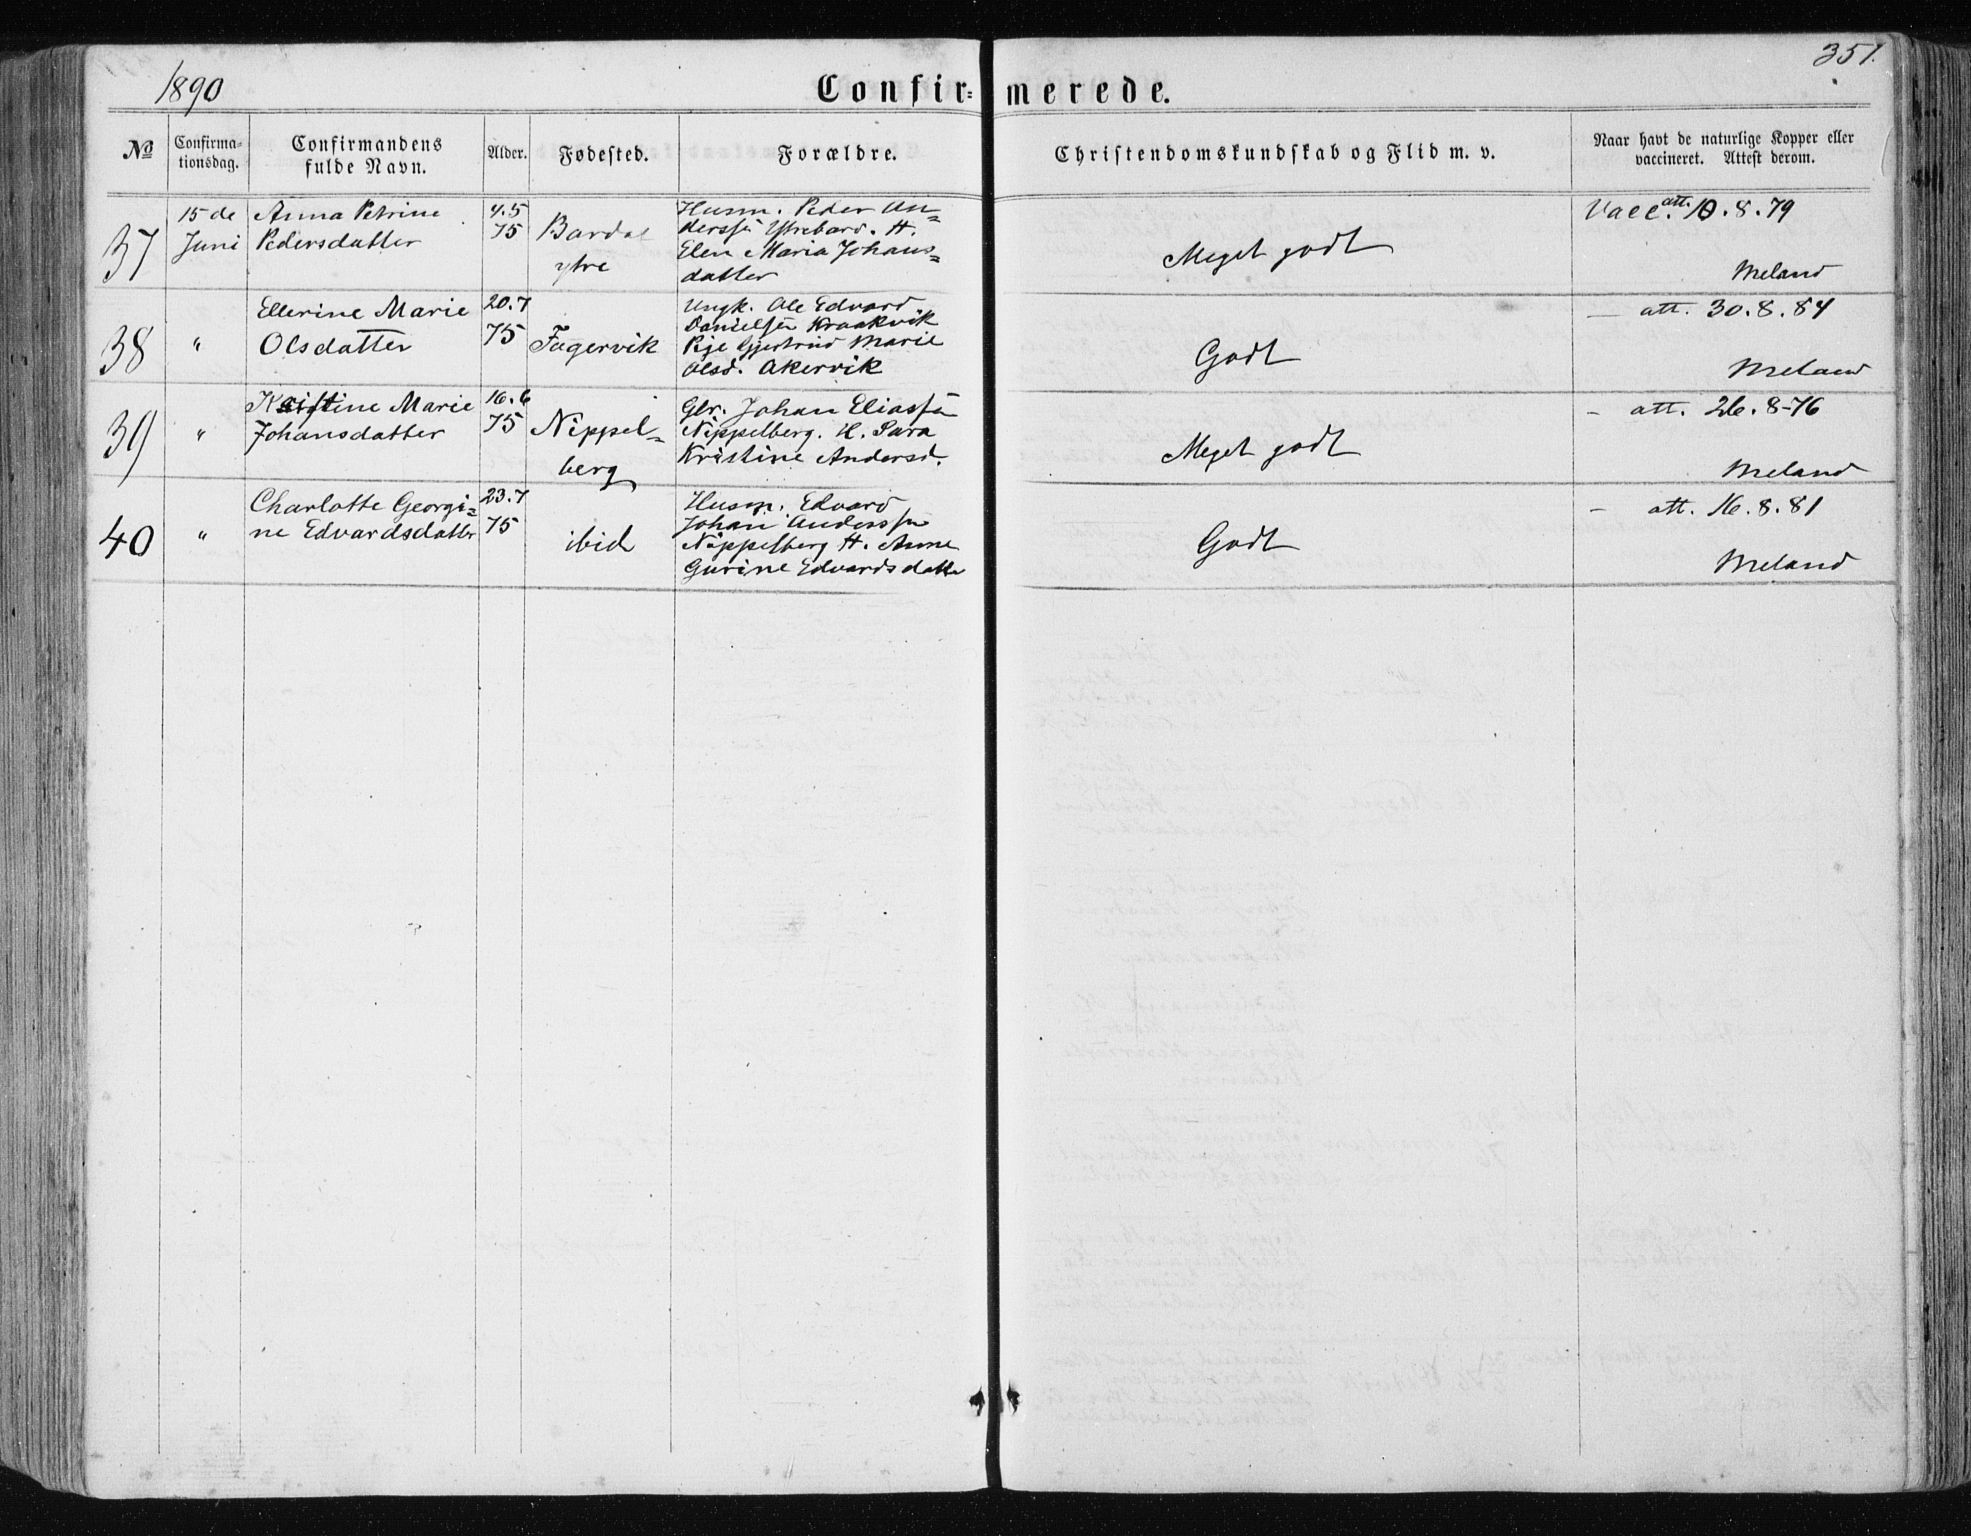 1890
351.
Confir= merede.
No
Confirma-
tionsdag.
Confirmandens
fulde Navn.
Alder.
Fødested.
Forældre.
Christendomskundskab og Flid m. v.
Naar havt de naturlige Kopper eller
vaccineret. Attest derom.
37
15 de
Juni
Anna Petrine
Pedersdatter
4.5
75
Bardal
ytre
Husm. Peder An=
derssen Ytrebard. H.
Elen Maria Johans=
datter
Meget godt
Vacc. att. 10.8.79
Meland
38
"
Ellerine Marie
Olsdatter
20.7
75
Fagervik
Ungk. Ole Edvard
Danielsen Kraakvik
Pige Gjertrud Marie
Olsd. Akervik
Godt
— att. 30.8.84
Meland
39
"
Kristine Marie
Johansdatter
16.6
75
Nippel=
berg
Gbr. Johan Eliassen
Nippelberg. H. Sara
Kristine Andersd.
Meget godt
- att. 26.8-76
Meland
40
"
Charlotte Georgi=
ne Edvardsdatter
23.7
75
ibid
Husm. Edvard
Johan Anderssen
Nippelberg H. Anne
Gurine Edvardsdatter
Godt
- att. 16.8.81
Meland